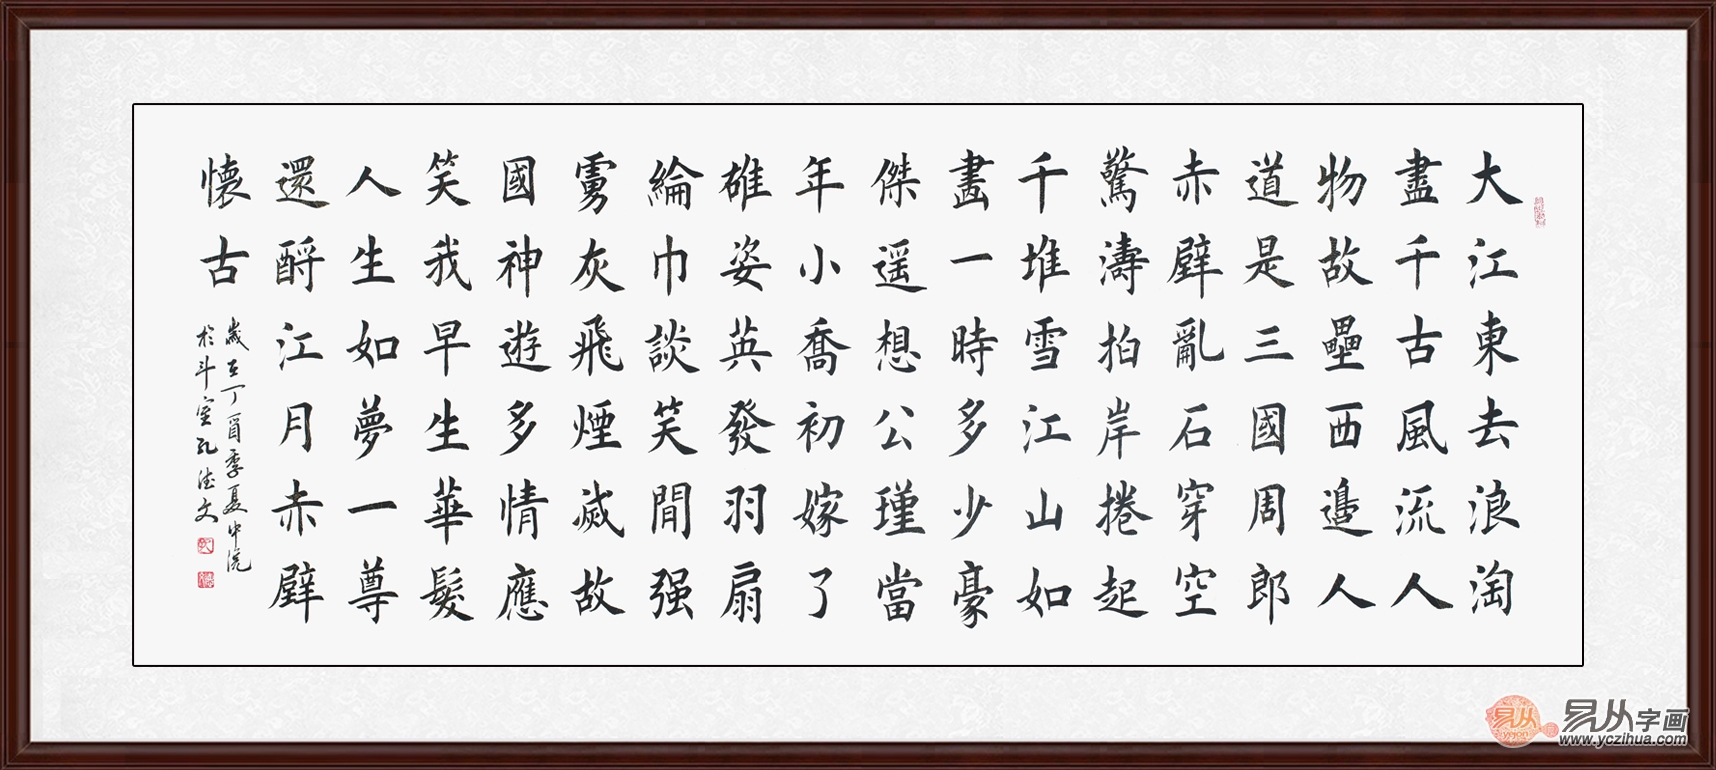 大江東去浪淘
盡千古風流人
物故壘西邊人
道是三國周郎
赤壁亂石穿空
驚濤拍岸捲起
千堆雪江山如
畫一時多少豪
傑遥想公瑾當
年小喬初嫁了
雄姿英發羽扇
綸巾談笑間强
虜灰飛煙滅故
國神遊多情應
笑我早生華髮
人生如夢一尊
還酹江月赤壁
懷古
歲在丁酉季夏中浣
於斗室孔德文
易从
yiyon
易从字画
www.yczihua.com